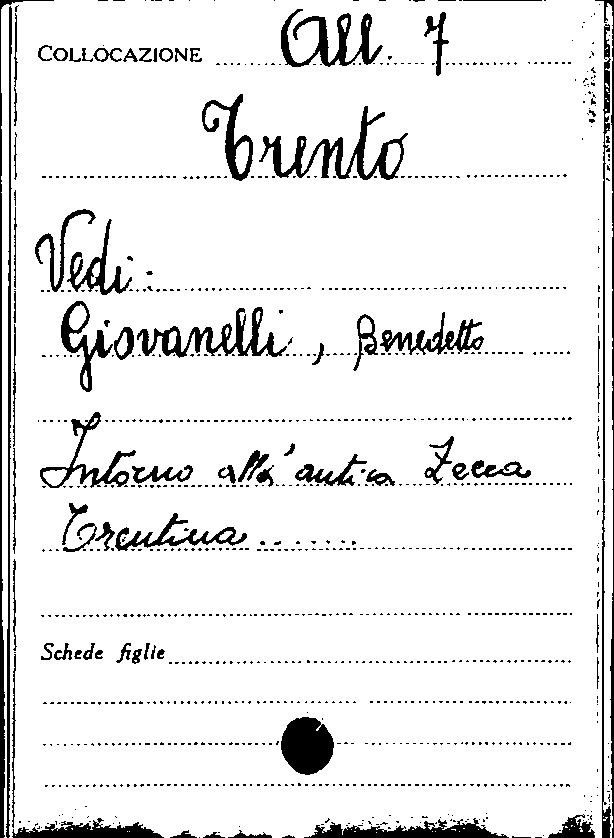 COLLOCAZIONE All. 7
Trento
Vedi:
Giovanelli, Benedetto
Intorno all'antica Zecca
Trentina........
Schede figlie